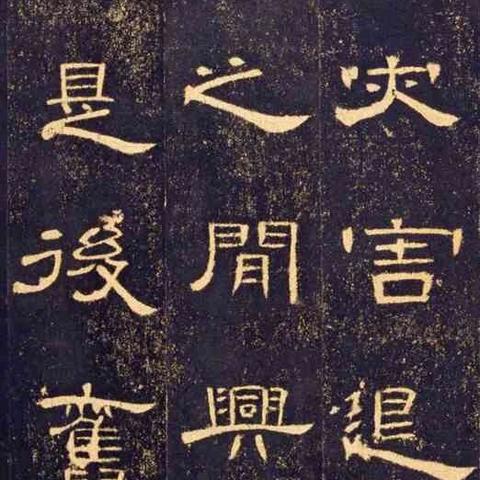 灾害退
之閒興
是後舊